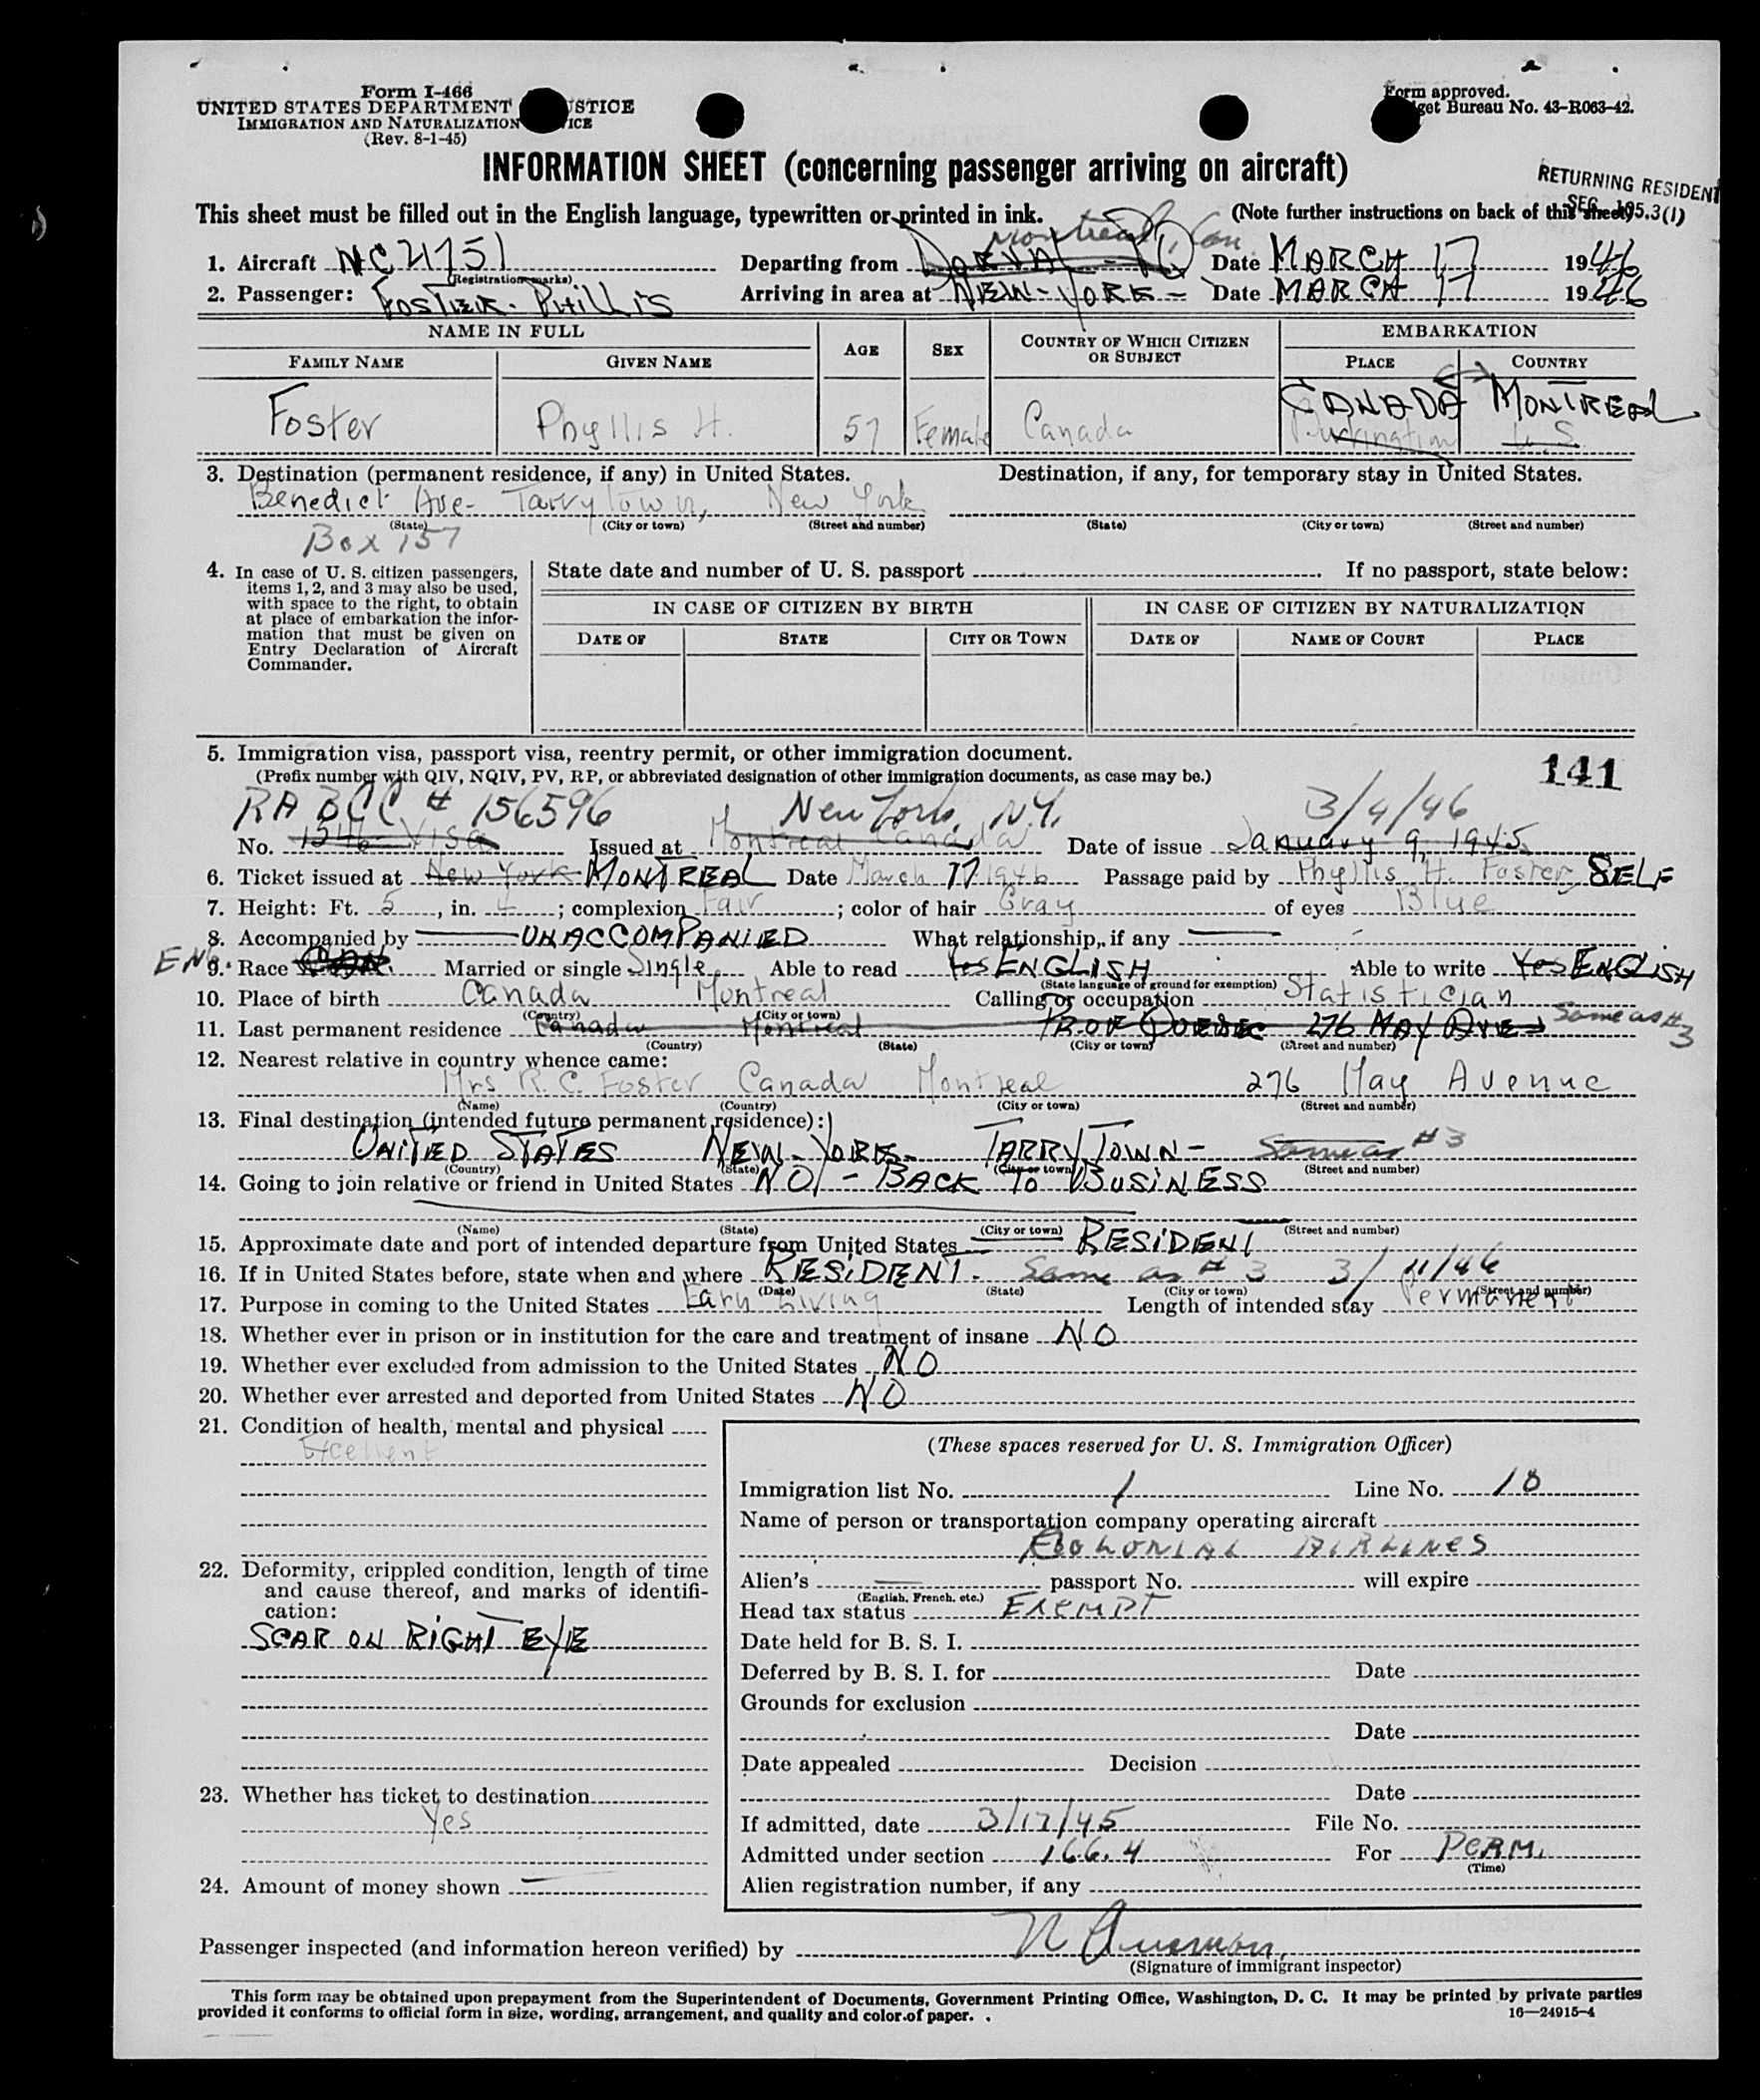 Form I-466
UNITED STATES DEPARTMENT STICE
IMMIGRATION AND NATURALIZATION ICE
(Rev. 8-1-45)
Form approved.
get Bureau No. 43-R063-42.
INFORMATION SHEET (concerning passenger arriving on aircraft)
RETURNING RESIDENT
SEC. 195.3(1)
This sheet must be filled out in the English language, typewritten or printed in ink. (Note further instructions on back of this sheet)
Montreal, Can
1. Aircraft NC21751 Departing from DORVAL - PQ Date MARCH 17 1946
(Registration marks)
2. Passenger: FOSTER - PHILLIS Arriving in area at NEW-YORK - Date MARCH 17 1946
NAME IN FULL AGE SEX COUNTRY OF WHICH CITIZEN OR SUBJECT EMBARKATION
FAMILY NAME GIVEN NAME PLACE COUNTRY
CANADA MONTREAL
Foster Phyllis H. 57 Female Canada U.S.
3. Destination (permanent residence, if any) in United States. Destination, if any, for temporary stay in United States.
Benedict Ave- Tarrytown, New York
(State) (City or town) (Street and number) (State) (City or town) (Street and number)
Box 157
4. In case of U. S. citizen passengers, items 1, 2, and 3 may also be used, with space to the right, to obtain at place of embarkation the information that must be given on Entry Declaration of Aircraft Commander.
State date and number of U. S. passport If no passport, state below:
IN CASE OF CITIZEN BY BIRTH IN CASE OF CITIZEN BY NATURALIZATION
DATE OF STATE CITY OR TOWN DATE OF NAME OF COURT PLACE
5. Immigration visa, passport visa, reentry permit, or other immigration document.
(Prefix number with QIV, NQIV, PV, RP, or abbreviated designation of other immigration documents, as case may be.)
141
RA BCC # 156596 New York, N.Y. 3/4/46
No. 1546 Visa Issued at Montreal Canada Date of issue January 9, 1945
6. Ticket issued at New York MONTREAL Date March 17 1946 Passage paid by Phyllis H. Foster SELF
7. Height: Ft. 5, in. 4; complexion Fair; color of hair Gray of eyes Blue
8. Accompanied by UNACCOMPANIED What relationship, if any
ENG. 9. Race CAN. Married or single Single Able to read Yes ENGLISH Able to write Yes ENGLISH
(State language or ground for exemption)
10. Place of birth Canada Montreal Calling or occupation Statistician
(Country) (City or town)
11. Last permanent residence Canada Montreal PROV QUEBEC 276 MAY AVE Same as #3
(Country) (State) (City or town) (Street and number)
12. Nearest relative in country whence came:
Mrs R. C. Foster Canada Montreal 276 May Avenue
(Name) (Country) (City or town) (Street and number)
13. Final destination (intended future permanent residence):
UNITED STATES NEW-YORK- TARRYTOWN - Same as #3
(Country) (State) (City or town) (Street and number)
14. Going to join relative or friend in United States NO, - BACK TO BUSINESS
(Name) (State) (City or town) (Street and number)
15. Approximate date and port of intended departure from United States RESIDENT
16. If in United States before, state when and where RESIDENT. Same as #3 3/11/46
(Date) (State) (City or town) (Street and number)
17. Purpose in coming to the United States Earn Living Length of intended stay Permanent
18. Whether ever in prison or in institution for the care and treatment of insane NO
19. Whether ever excluded from admission to the United States NO
20. Whether ever arrested and deported from United States NO
21. Condition of health, mental and physical
Excellent
22. Deformity, crippled condition, length of time and cause thereof, and marks of identification:
SCAR ON RIGHT EYE
23. Whether has ticket to destination
Yes
24. Amount of money shown
(These spaces reserved for U. S. Immigration Officer)
Immigration list No. 1 Line No. 18
Name of person or transportation company operating aircraft
COLONIAL AIRLINES
Alien's passport No. will expire
(English, French, etc.)
Head tax status EXEMPT
Date held for B. S. I.
Deferred by B. S. I. for Date
Grounds for exclusion
Date
Date appealed Decision
Date
If admitted, date 3/17/45 File No.
Admitted under section 166.4 For PERM.
(Time)
Alien registration number, if any
Passenger inspected (and information hereon verified) by
(Signature of immigrant inspector)
This form may be obtained upon prepayment from the Superintendent of Documents, Government Printing Office, Washington, D. C. It may be printed by private parties
provided it conforms to official form in size, wording, arrangement, and quality and color of paper.
16—24915-4